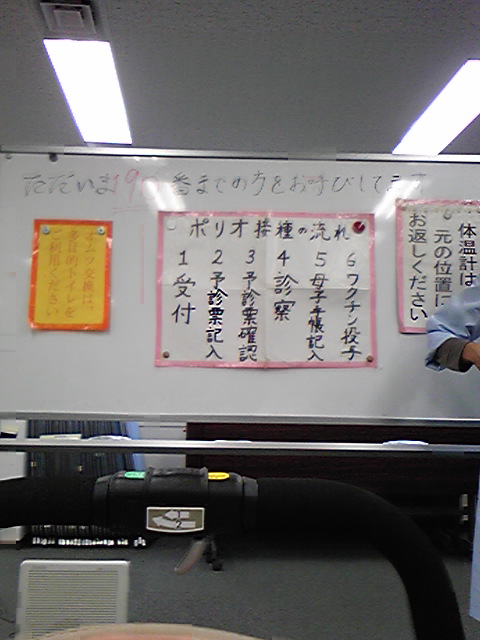 ただいま190番までの方をお呼びしてます
ポリオ接種の流れ
1 受付
2 予診票記入
3 予診票確認
4 診察
5 母子手帳記入
6 ワクチン投与
オムツ交換は、
多目的トイレを
ご利用ください
体温計は
元の位置に
お返しください
1
2